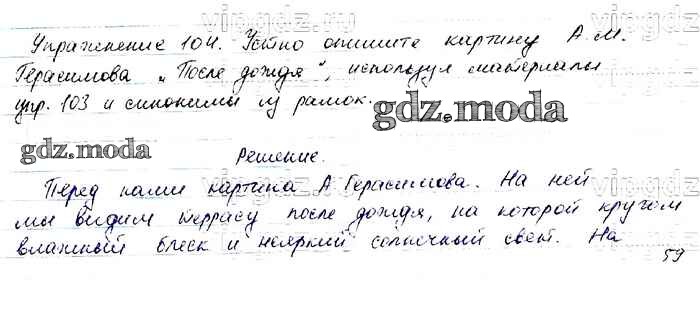 vipgdz.ru
Упражнение 104. Устно опишите картину А.М.
Герасимова „После дождя", используя материалы
упр. 103 и синонимы из рамок.
gdz.moda
gdz.moda
Решение.
Перед нами картина А. Герасимова. На ней
мы видим террасу после дождя, на которой кругом
влажный блеск и неяркий солнечный свет. На
59